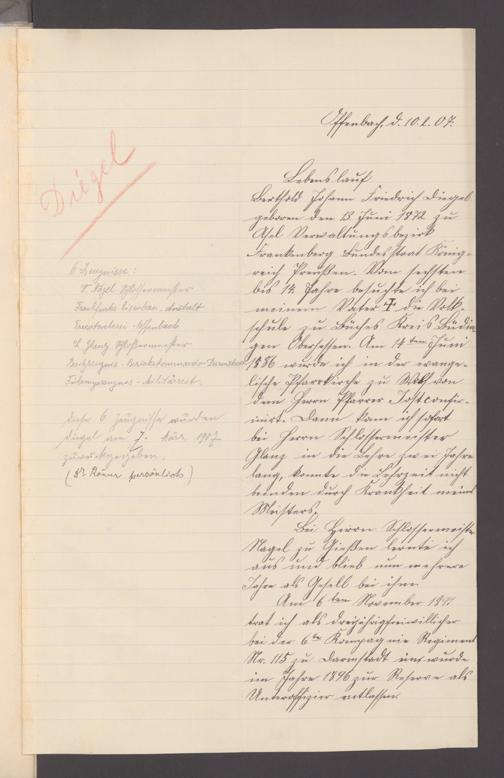 Offenbach, d. 10.2.07.
Diegel
Lebenslauf
Berthold Johann Friedrich Diegel
geboren den 13 Juni 1872 zu
Asel Verwaltungsbezirk
Frankenberg Bundesstaat König-
reich Preußen. Vom sechsten
bis 14 Jahre besuchte ich bei
meinem Vater die Volk-
schule zu Büches Kreis Büdin-
gen Oberhessen. Am 14ten Juni
1886 wurde ich in der evange-
lische Pfarrkirche zu von
den Herrn Pfarrer Jost confir-
mirt. Dann kam ich sofort
bei Herrn Schlossermeister
Glanz in die Lehre zwei Jahre
lang, konnte die Lehrzeit nicht
beenden durch Krankheit meines
Meisters.
Bei Herrn Schlossermeister
Nagel zu Gießen lernte ich
aus und blieb nun mehrere
Jahre als Gesell bei ihm.
Am 6ten November 1891
trat ich als dreijährigfreiwilliger
bei der 6te Kompagnie Regiment
Nr. 115 zu Darmstadt ein wurde
im Jahre 1896 zur Reserve als
Unteroffizier entlassen.
6 Zeugnisse:
Schlossermeister
Offenbach
Glanz Schlossermeister
Bezirkskommando Darmstadt
Diese 6 Zeugnisse wurden
Diegel am 7. März 1907
zurückgegeben.
(persönlich)